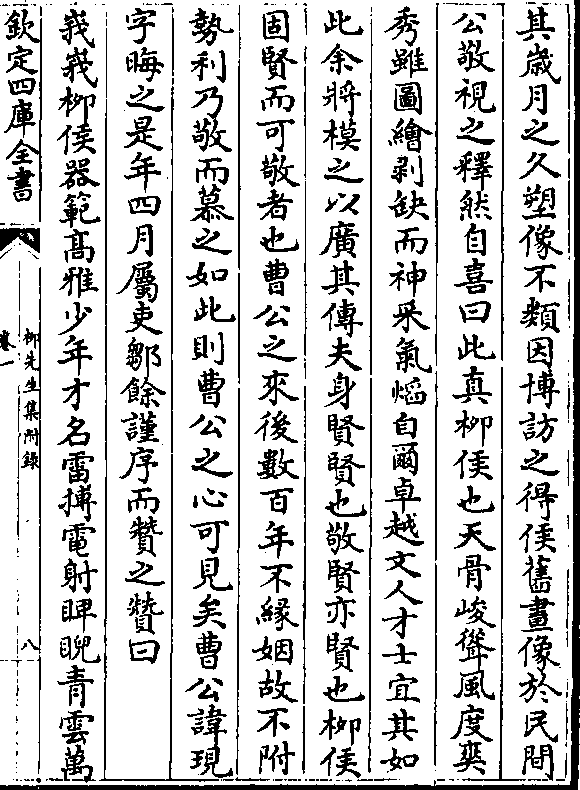 其歲月之久塑像不類因博訪之得侯舊畫像於民間
公敬視之釋然自喜曰此真柳侯也天骨峻聳風度爽
秀雖圖繪剥缺而神采氣熖自爾卓越文人才士宜其如
此余將模之以廣其傳夫身賢賢也敬賢亦賢也柳侯
固賢而可敬者也曹公之來後數百年不緣姻故不附
勢利乃敬而慕之如此則曹公之心可見矣曹公諱現
字晦之是年四月屬吏鄒餘謹序而贊之贊曰
峩峩柳侯器範髙雅少年才名雷搏電射睥睨青雲萬
欽定四庫全書
柳先生集附錄
卷一
八